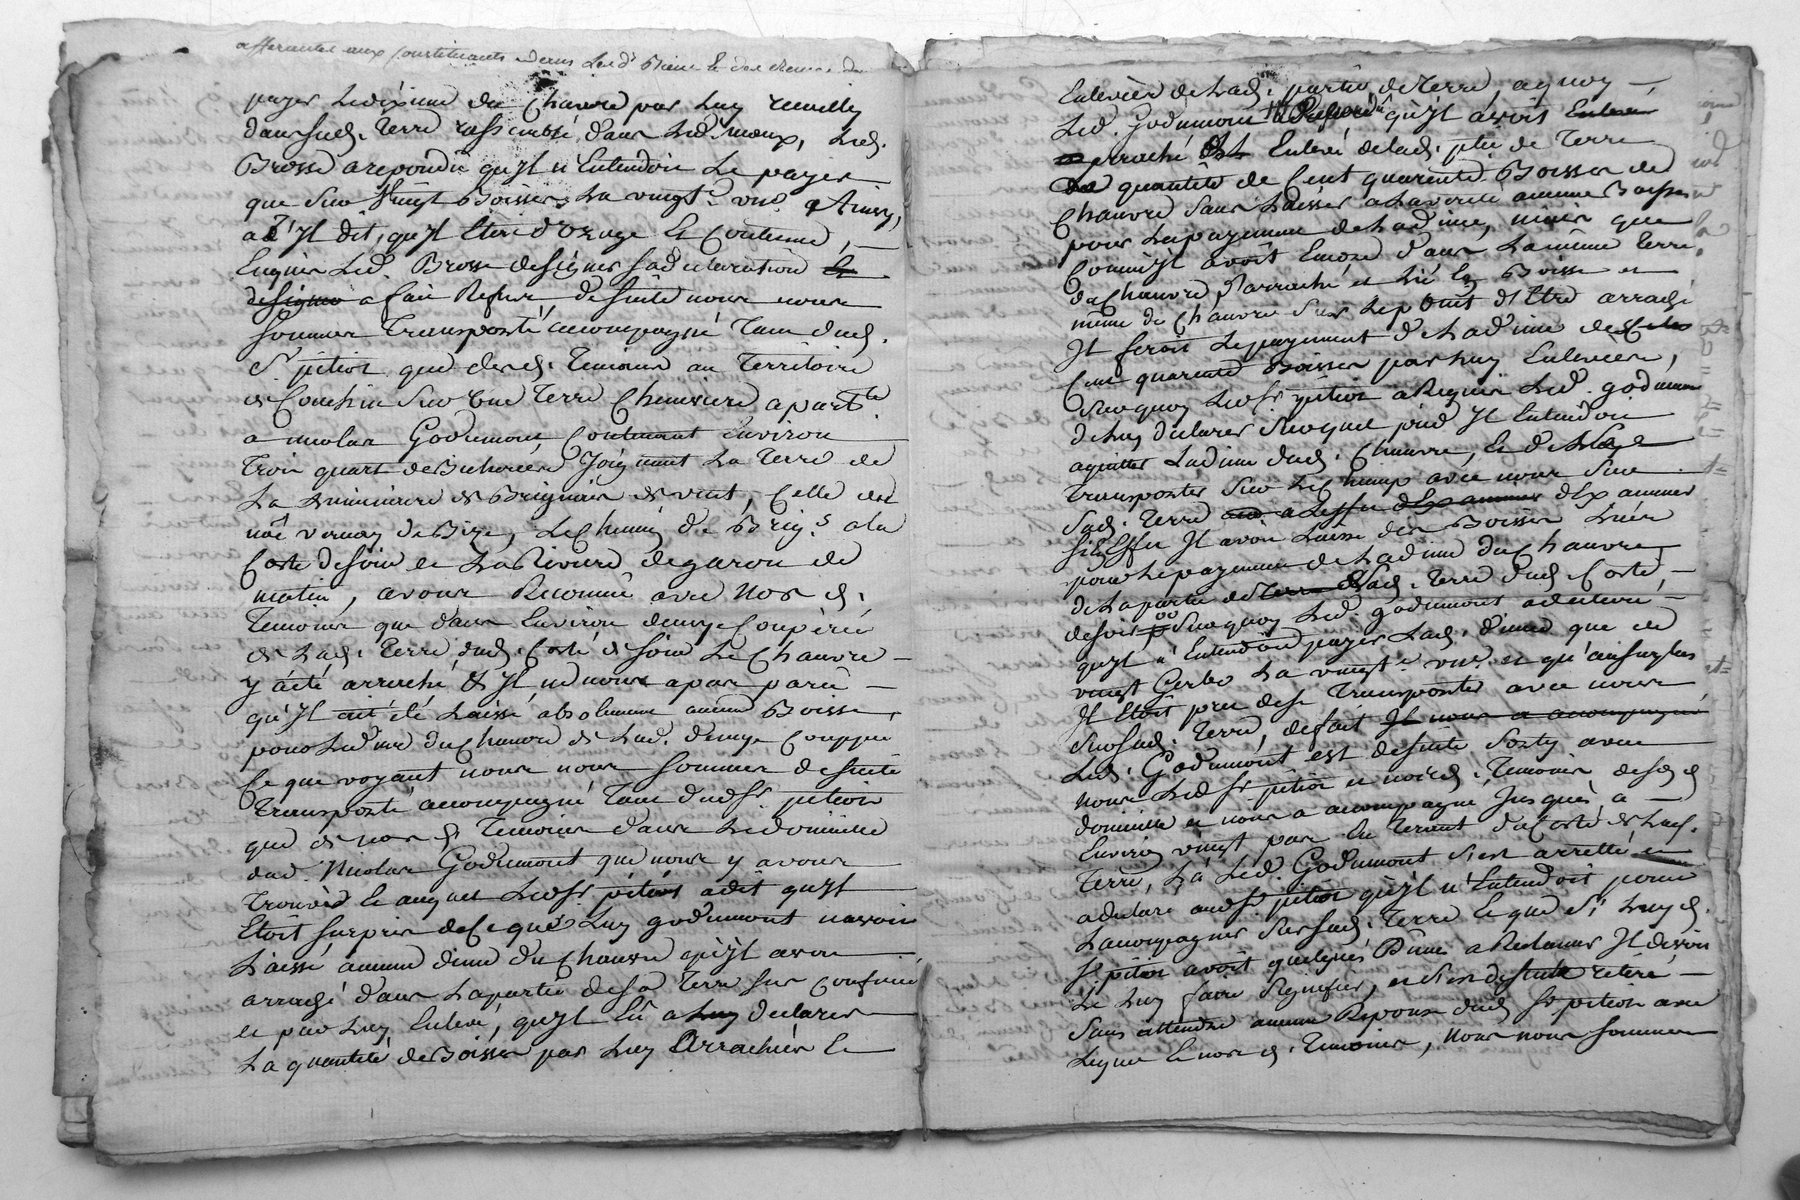 afferantes aux constituants dans les d. Biens et
payer le dixieme du Chanvre par luy recueilly
dans sad. Terre
Brosse a repondu qu'Jl n'Entendoit le payer
que Sur Vuingt Boisses La vuingt.e une
a t'Jl dit, qu'Jl Etoit d'Uzage Et Coutume,
Enquis Led. Brosse de signer sa declaration et
de signer a fait Refus, de suite nous nous
sommes Transporté accompagné Tant dud.
S.r pition que desd. Temoins au Territoire
de Conchin Sur Une Terre Cheneviere apart.te
a nicolas Godumont Contenant Environ
Trois quart de Bicherée Joignant La Terre de
La de Brignais de vent, Celle de
vernay de Bize, Le Chemin de Brig.s a la
Coste de soir et La Riviere de garon de
matin, avons Reconnu avec Nos d.
Temoins que dans Environ demye Coupérée
de Lad. Terre dud. Costé de soir Le Chanvre
y a été arraché & Jl ne nous a pas paru
qu'Jl ait été Laissé absolument aucune Boisse
pour La dime du Chanvre de Lad. demye Couppée
Ce que voyant nous nous sommes de suite
Transporté accompagné Tant dud. S.r pition
que de nos d. Temoins dans Le domicille
dud. Nicolas Godumont que nous y avons
Trouvé le auquel Led. S.r pition a dit qu'Jl
Etoit surpris de Ce que Luy godumont n'avoit
Laissé aucune dime du Chanvre qu'Jl avoit
arraché dans La partie de sa Terre sus confinée
et par Luy Enlevé, qu'Jl Eu a Luy declarer
La quantité de Boisses par Luy Arrachées et
Enlevées de Lad. partie de Terre, a quoy
Led. Godumont a Repondu qu'Jl avoit Enlevé
arraché Et Enlevé de Lad. p.tie de Terre
La quantité de Cent quarente Boisses de
Chanvre sans Laisser a La verité aucune Boisse
pour Le payement de La dime, mais que
Comme Jl avoit Encore dans La même Terre
du Chanvre d'arraché et Lié En Boisse et
même du Chanvre sur Le point d'Etre arraché
Jl feroit Le payement de La dime des
Cent quarente Boisses par Luy Enlevées,
Sur quoy Led. S.r pition a Requis Led. godumont
de Luy declarer Sur quel pied Jl Entendoit
aquitter La dime dud. Chanvre, Et de
Transporter Sur Le Champ avec nous Sur
Sad. Terre a L'effet d'Examiner d'Examiner
Si En Effet Jl avoit Laissé des Boisses
pour Le payement de La dime du Chanvre
de La partie de Terre de Sad. Terre dud. Costé
de soir Sur quoy Led. godumont a declaré
qu'Jl n'Entendoit payer Lad. dime que de
vuingt Gerbes La vuingt.e une et qu'au surplus
Jl Etoit pret de se Transporter avec nous
Sur sad. Terre, de fait Jl nous a accompagné
Led. Godumont est de suite Sorty avec
nous Led. S.r pition et nosd. Temoins de sod.
domicille et nous a accompagné Jusques a
Environ vuingt pas En Tenant du Costé de Lad.
Terre, Là Led. Godumont s'est arretté et
a declaré aud. S.r pition qu'Jl n'Entendoit point
L'accompagner Sur sad. Terre Et que Si Luy d.
S.r pition avoit quelques Dimes a Reclamer Jl devoit
Le Luy faire Signifier, et s'est de suite retiré
Sans attendre aucune Reponse dud. S.r pition avec
Lequel Et nos d. Temoins, Nous nous sommes